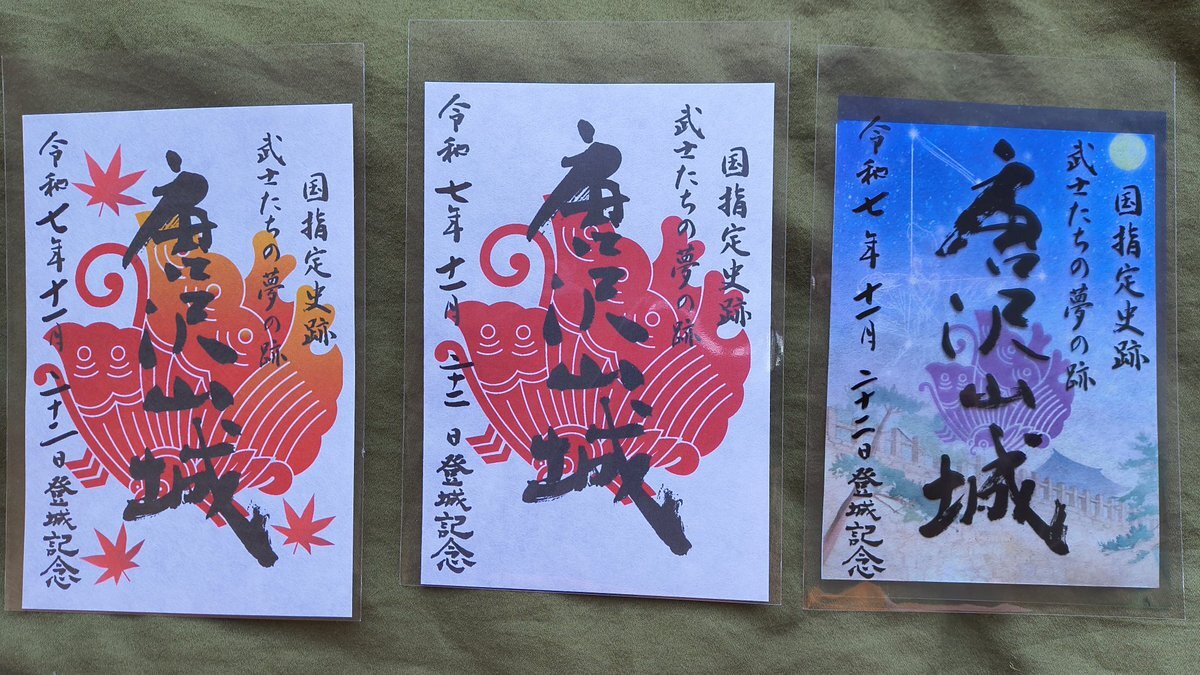 国指定史跡
武士たちの夢の跡
唐沢山城
令和七年十一月二十二日登城記念
国指定史跡
武士たちの夢の跡
唐沢山城
令和七年十一月二十二日登城記念
国指定史跡
武士たちの夢の跡
唐沢山城
令和七年十一月二十二日登城記念